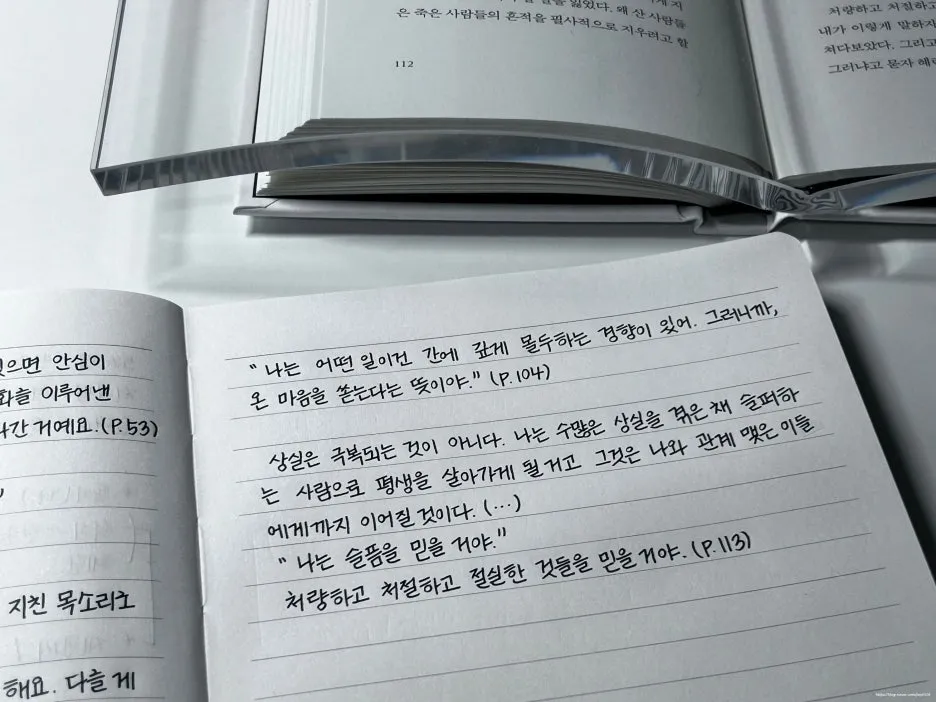 을 잃었다. 왜 산 사람들
은 죽은 사람들의 흔적을 필사적으로 지우려고 할
112
처량하고 처절하고
내가 이렇게 말하자
쳐다보았다. 그리고
그러냐고 묻자 해
으면 안심이
이루어낸
간 거예요.(P.53)
지친 목소리로
해요. 다들 게
"나는 어떤 일이건 간에 깊게 몰두하는 경향이 있어. 그러니까,
온 마음을 쏟는다는 뜻이야." (P.104)
상실은 극복되는 것이 아니다. 나는 수많은 상실을 겪은 채 슬퍼하
는 사람으로 평생을 살아가게 될 거고 그것은 나와 관계 맺은 이들
에게까지 이어질 것이다. (···)
"나는 슬픔을 믿을 거야."
처량하고 처절하고 절실한 것들을 믿을 거야. (P.113)